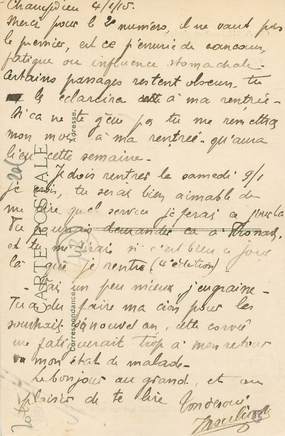 Champdieu 4/1/15.
Merci pour le 2e numéro, il ne vaut pas
le premier, est ce pénurie de concours,
fatigue ou influence stomachale.
Certains passages restent obscurs, tu
les éclaircira à ma rentrée.
Si ça ne te gêne pas tu me remettras
mon mois à ma rentrée qu'aura
lieu cette semaine.
Je dois rentrer le samedi 9/1
je crois, tu serais bien aimable de
me dire quel service je ferai à
Tu pourrais demander ça à
et tu me dirais si c'est bien ce jour
là que je rentre (4e édition)
J'ai un peu mieux j'engraisse
Tu as du faire ma
souhait de nouvel an, cette corvée
me fatiguerait trop à mon retour
mon état de malade.
Le bonjour au grand, et au
plaisir de te lire Ton dévoué
CARTE POSTALE
Correspondance
Adresse